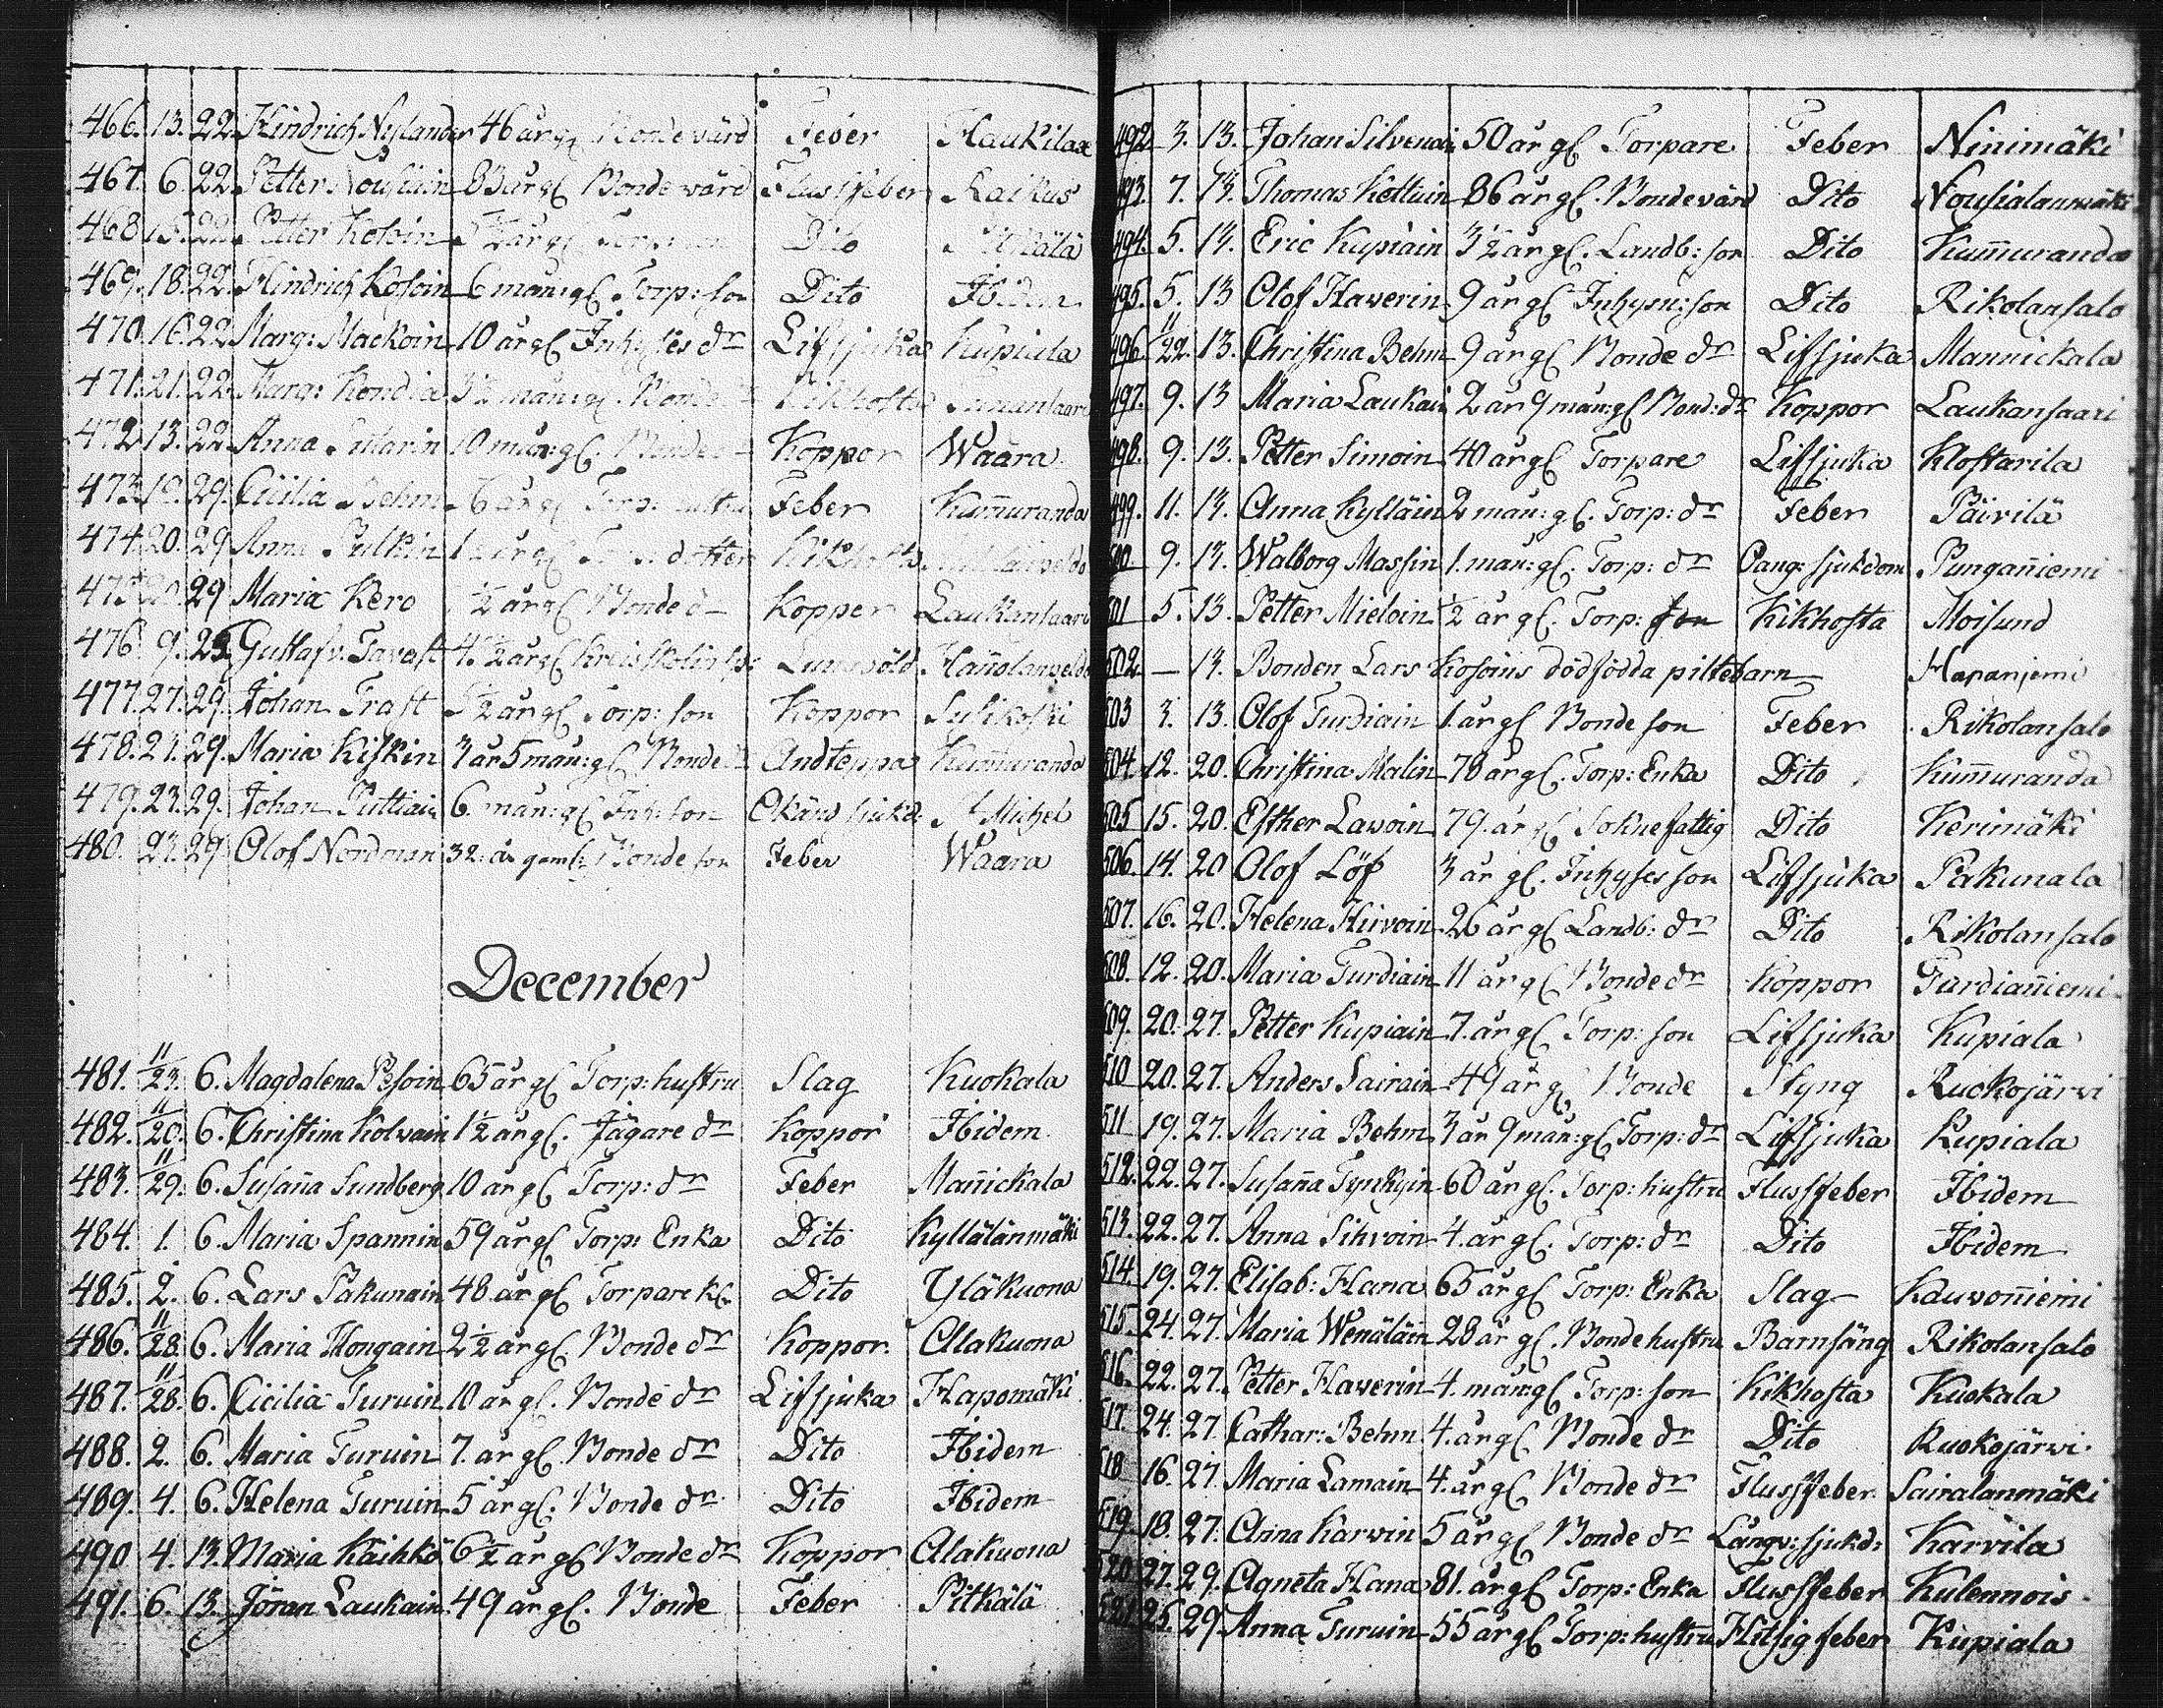 466. 13. 22. Hindrich Nylander 46 år gl Bonde värd Feber Haukilax
467. 6. 22. Petter Nousiain 83 år gl Bonde värd Flussfeber Raikus
468. 15. 22. Petter Kosoin ½ år gl Dito Pitkälä
469. 18. 22. Hindrich Kosoin 6 mån: gl. Torp: son Dito Ibidem
470. 16. 22 Marg: Mackoin 10 år gl Inhyses dr Lifsjuka Kupiala
471. 21. 22. Marg: Kondia 3½ mån: gl. Bonde Kikhosta
472 13. 22. Anna 10 mån: gl. Bonde Koppor Waara
473 19. 29. Cicilia Behm år gl Torp: hustru Feber Kum̄uranda
474 20. 29 Anna Pulkin år gl Torp: dotter Kikhosta
475 29 Maria Kero ½ år gl Bonde dr Kopper Laukansaari
476 9. 29. Gustaf v. Tavast 4½ år gl
477. 27. 29. Johan Trast ½ år gl Torp: son Koppor Sulikoski
478. 23. 29. Maria Kiskin 3 år 5 mån: gl Bonde dr Andteppa Kum̄uranda
479. 23. 29. Johan Puttiain 6. mån: gl Inh: son Okänd sjukd: St Michel
480. 23. 29 Olof Nordman 32: år gaml: Bonde son Feber Waara
December
481. 11/23. 6. Magdalena Pesoin 65 år gl Torp: hustru Slag Kuokala
482. 11/20. 6. Christina Kolvain 1½ år gl. Jägare dr Koppor Ibidem
483. 11/29. 6. Susan̄a Sundberg 10 år gl Torp: dr Feber Man̄ickala
484. 1. 6. Maria Spannin 59 år gl Torp: Enka Dito Kyllälänmäki
485. 2. 6. Lars Pakunain 48 år gl Torpare Kl. Dito Yläkuona
486. 11/28. 6. Maria Mongain 2½ år gl. Bonde dr Koppor. Alakuona
487. 11/28. 6. Cicilia Turuin 10 år gl. Bonde dr Lifsjuka Hapomäki
488. 2. 6. Maria Turuin 7. år gl Bonde dr Dito Ibidem
489. 4. 6. Helena Turuin 5 år gl. Bonde dr Dito Ibidem
490 4. 13. Maria Kaihko 6½ år gl Bonde dr Koppor Alakuona
491. 6. 13. Jöran Laukain 49 år gl. Bonde Feber Pitkälä
492 3. 13. Johan Silvenoin 50 år gl Torpare Feber Ninimäki
493. 7. 13. Thomas Kettuin 86 år gl. Bonde värd Dito Nousialanmäki
494. 5. 13. Eric Kupiain 3½ år gl. Landb: son Dito Kum̄uranda
495. 5. 13 Olof Haverin 9 år gl Inhysn: son Dito Rikolansalo
496. 11/22. 13. Christina Behm 9 år gl Bonde dr Lifsjuka Mannickala
497. 9. 13 Maria Laukain 2 år 9 mån: gl Bond: dr Koppor Laukansaari
498. 9. 13. Petter Simoin 40 år gl Torpare Lifsjuka Klostarila
499. 11. 13. Anna Kylläin 2 mån: gl. Torp: dr Feber Päivilä
500. 9. 13. Walborg Massin 1. mån: gl. Torp: dr Lang: sjukdom Pungan̄iemi
501 5. 13. Petter Mieloin ½ år gl. Torp: son Kikhosta Moisund
502 – 13. Bonden Lars Kosoins dödfödda piltebarn Haraniemi
503 3. 13. Olof Turdiain 1. år gl Bonde son Feber Rikolansalo
504. 12. 20. Christina Malin 78 år gl. Torp: Enka Dito Kum̄uranda
505 15. 20. Esther Lavoin 79. år gl Sokne fattig Dito Kerimäki
506. 14. 20 Olof Löf 3 år gl. Inhyses son Lifsjuka Pakunala
507. 16. 20. Helena Hirvoin 26 år gl Landb: dr Dito Rikolansalo
508. 12. 20. Maria Turdiain 11 år gl Bonde dr Koppor Turdian̄iemi
509. 20. 27. Petter Kupiain 7. år gl Torp: son Lifsjuka Kupiala
510 20. 27. Anders Sairain 49 år gl Bonde Styng Ruokojärvi
511 19. 27. Maria Behm 3 år 9 mån: gl Torp: dr Lifsjuka Kupiala
512. 22. 27. Susan̄a Tynkyin 60 år gl. Torp: hustru Flussfeber Ibidem
513. 22. 27. Anna Sihvoin 4. år gl. Torp: dr Dito Ibidem
514. 19. 27. Elisab: Hana 65 år gl Torp: Enka Slag Kauvon̄iemi
515. 24. 27. Maria Wenäläin 28 år gl. Bonde hustru Barnsäng Rikolansalo
516. 22. 27. Petter Haverin 4. mån: gl Torp: son Kikhosta Kuokala
517. 24. 27 Cathar: Behm 4. år gl Bonde dr Dito Ruokojärvi
518 16. 27 Maria Lamain 4. år gl Bonde dr Flussfeber Sairalanmäki
519. 18. 27. Anna Karvin 5 år gl Bonde dr Långv: sjukd: Karvila
520. 27. 29. Agneta Hana 81. år gl Torp: Enka Flussfeber Kulennois
521. 25. 29. Anna Turuin 55 år gl Torp: hustru Hitsig feber Kupiala